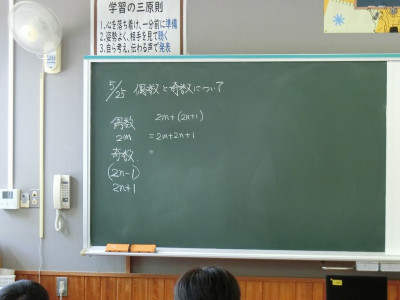 学習の三原則
1.心を落ち着け、一分前に準備
2.姿勢よく、相手を見て聴く
3.自ら考え、伝わる声で発表
5/25 偶数と奇数について
偶数
2m
奇数
2n-1
2n+1
2m+(2n+1)
=2m+2n+1
=